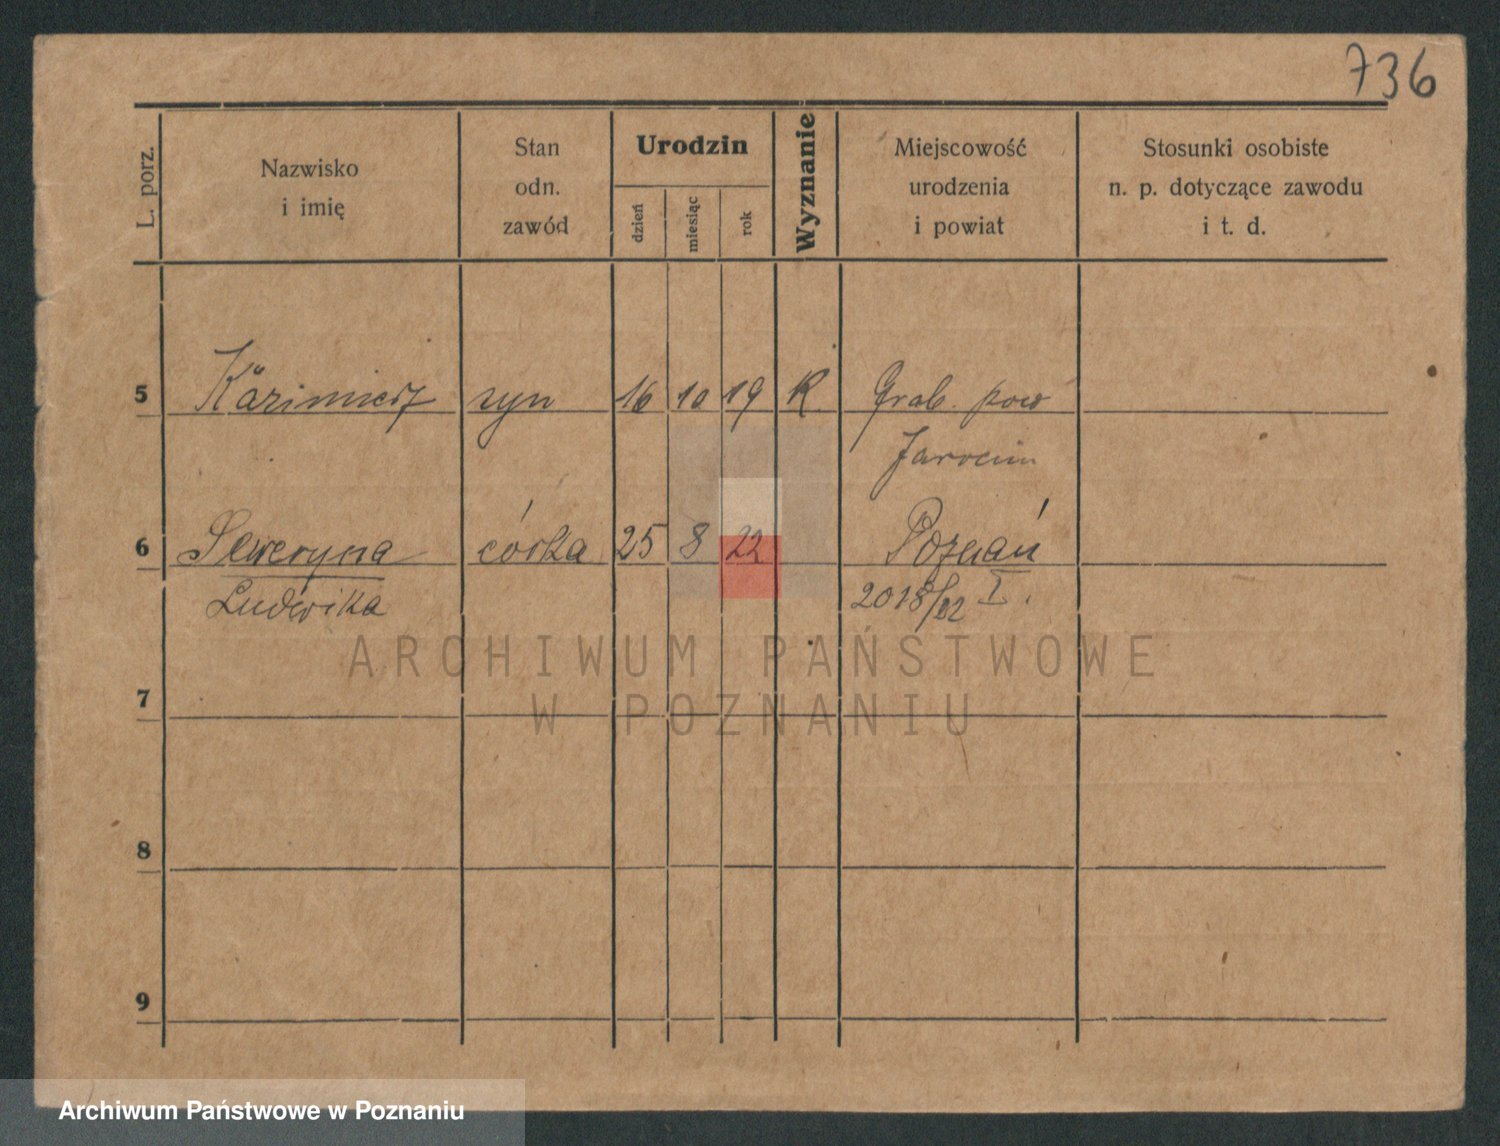 736
L. porz.
Nazwisko
i imię
Stan
odn.
zawód
Urodzin
dzień
miesiąc
rok
Wyznanie
Miejscowość
urodzenia
i powiat
Stosunki osobiste
n. p. dotyczące zawodu
i t. d.
5 Kazimierz syn 16 10 19 K. Grab. pow
Jarocin
6 Seweryna córka 25 8 22 Poznań
Ludwika 2018/22 I.
ARCHIWUM PAŃSTWOWE
W POZNANIU
7
8
9
Archiwum Państwowe w Poznaniu